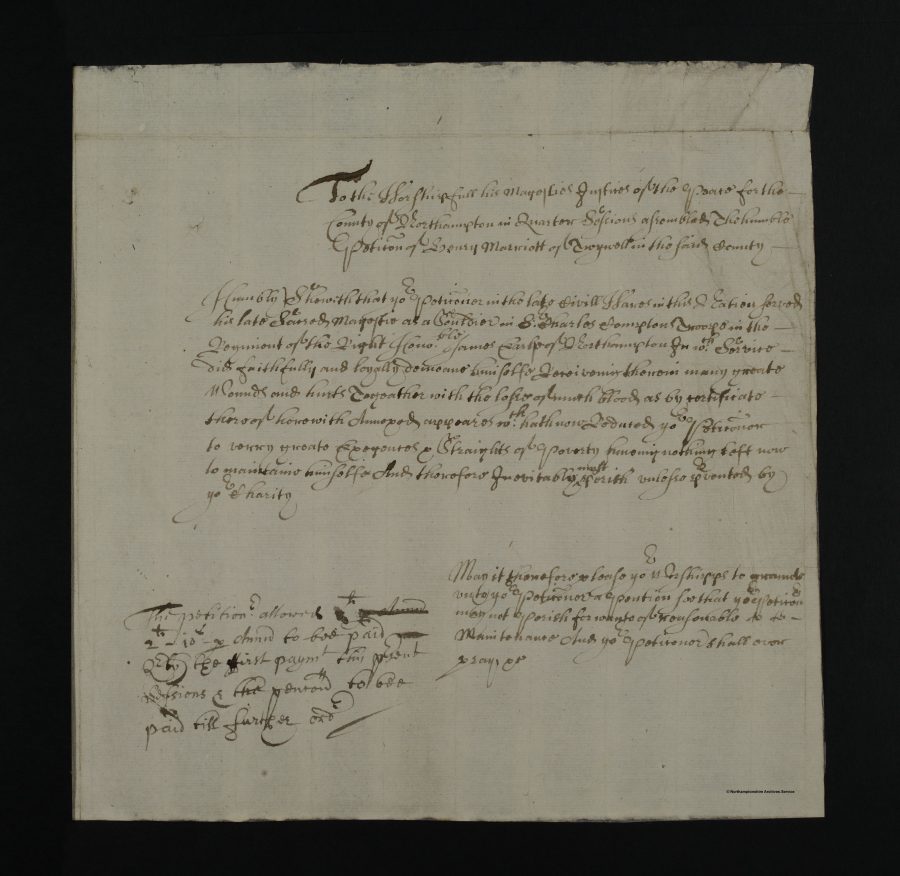 To the Worshipfull his Majesties Justices of the Peace for the
County of Northampton in Quarter Sessions assembled The humble
Petition of Henry Marriott of Twywell in the said County
Humbly Sheweth that yor Petitioner in the late Civill Wares in this Nation served
his late Sacred Majestie as a Souldier in Sr Charles Compton Troope in the
Regiment of the Right Honoble James Earle of Northampton In wch Service
did faithfully and loyally demeane himselfe Receiveing therein many greate
Wounds and hurts Togeather with the losse of much blood as by certificate
thereof herewith Annexed appeares wch hath now Reduced yor Petitioner
to verry greate Exegences & Straights of Poverty haveing nothing left now
to maintaine himselfe And therefore Inevitably must Perish unlesse prvented by
yor Charity
May it therefore please yor Worshipps to graunte
unto yor Petitioner a Pention soe that yor Petitionr
may not Perish for want of reasonable
Maintenance And yor Petitioner shall ever
pray &c
The petitionr allowed
2li – 10s – p Annu to bee paid
Qrtly the first paymt this prsent
Sessions & the pencon to bee
paid till further ordr
© Northamptonshire Archives Service